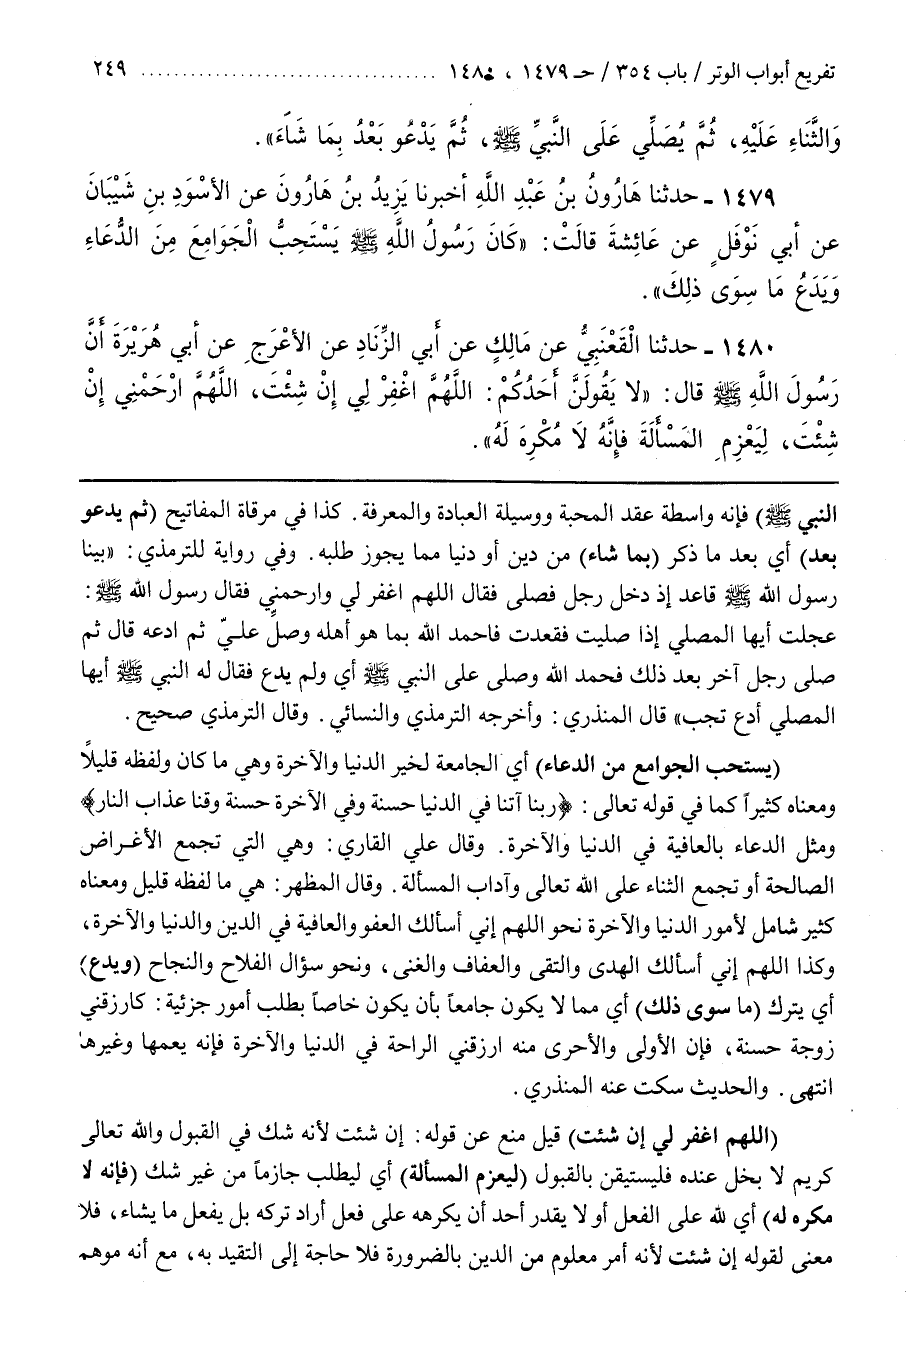 تفريع أبواب الوتر / باب ٣٥٤ / حـ ١٤٧٩ ، ١٤٨٠ ................................... ٢٤٩
وَالثَّنَاءِ عَلَيْهِ، ثُمَّ يُصَلِّي عَلَى النَّبِيِّ ﷺ، ثُمَّ يَدْعُو بَعْدُ بِمَا شَاءَ».
١٤٧٩ ـ حدثنا هَارُونُ بنُ عَبْدِ اللَّهِ أخبرنا يَزِيدُ بنُ هَارُونَ عن الأسْوَدِ بنِ شَيْبَانَ
عن أبي نَوْفَلٍ عن عَائِشةَ قالَتْ: «كَانَ رَسُولُ اللَّهِ ﷺ يَسْتَحِبُّ الْجَوَامِعَ مِنَ الدُّعَاءِ
وَيَدَعُ مَا سِوَى ذلِكَ».
١٤٨٠ ـ حدثنا الْقَعْنَبِيُّ عن مَالِكٍ عن أَبي الزِّنَادِ عن الأعْرَجِ عن أبي هُرَيْرَةَ أنَّ
رَسُولَ اللَّهِ ﷺ قال: «لا يَقُولَنَّ أَحَدُكُمْ: اللَّهُمَّ اغْفِرْ لِي إنْ شِئْتَ، اللَّهُمَّ ارْحَمْنِي إنْ
شِئْتَ، لِيَعْزِمِ المَسْأَلَةَ فإنَّهُ لَا مُكْرِهَ لَهُ».
النبي ﷺ) فإنه واسطة عقد المحبة ووسيلة العبادة والمعرفة. كذا في مرقاة المفاتيح (ثم يدعو
بعد) أي بعد ما ذكر (بما شاء) من دين أو دنيا مما يجوز طلبه. وفي رواية للترمذي: «بينا
رسول الله ﷺ قاعد إذ دخل رجل فصلى فقال اللهم اغفر لي وارحمني فقال رسول الله ﷺ:
عجلت أيها المصلي إذا صليت فقعدت فاحمد الله بما هو أهله وصلِّ عليّ ثم ادعه قال ثم
صلى رجل آخر بعد ذلك فحمد الله وصلى على النبي ﷺ أي ولم يدع فقال له النبي ﷺ أيها
المصلي أدع تجب» قال المنذري: وأخرجه الترمذي والنسائي. وقال الترمذي صحيح.
(يستحب الجوامع من الدعاء) أي الجامعة لخير الدنيا والآخرة وهي ما كان ولفظه قليلاً
ومعناه كثيراً كما في قوله تعالى: ﴿ربنا آتنا في الدنيا حسنة وفي الآخرة حسنة وقنا عذاب النار﴾
ومثل الدعاء بالعافية في الدنيا والآخرة. وقال علي القاري: وهي التي تجمع الأغراض
الصالحة أو تجمع الثناء على الله تعالى وآداب المسألة. وقال المظهر: هي ما لفظه قليل ومعناه
كثير شامل لأمور الدنيا والآخرة نحو اللهم إني أسألك العفو والعافية في الدين والدنيا والآخرة،
وكذا اللهم إني أسألك الهدى والتقى والعفاف والغنى، ونحو سؤال الفلاح والنجاح (ويدع)
أي يترك (ما سوى ذلك) أي مما لا يكون جامعاً بأن يكون خاصاً بطلب أمور جزئية: كارزقني
زوجة حسنة، فإن الأولى والأحرى منه ارزقني الراحة في الدنيا والآخرة فإنه يعمها وغيرها
انتهى. والحديث سكت عنه المنذري.
(اللهم اغفر لي إن شئت) قيل منع عن قوله: إن شئت لأنه شك في القبول والله تعالى
كريم لا بخل عنده فليستيقن بالقبول (ليعزم المسألة) أي ليطلب جازماً من غير شك (فإنه لا
مكره له) أي لله على الفعل أو لا يقدر أحد أن يكرهه على فعل أراد تركه بل يفعل ما يشاء، فلا
معنى لقوله إن شئت لأنه أمر معلوم من الدين بالضرورة فلا حاجة إلى التقيد به، مع أنه موهم